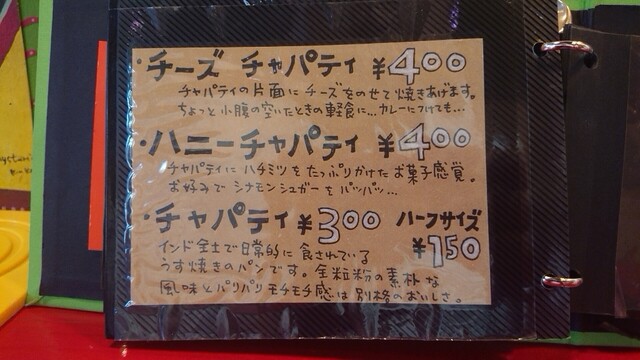 ・チーズ チャパティ ¥400
チャパティの片面にチーズをのせて焼きあげます。
ちょっと小腹の空いたときの軽食に…カレーにつけても…
・ハニーチャパティ ¥400
チャパティにハチミツをたっぷりかけたお菓子感覚。
お好みでシナモンシュガーをパッパッ…
・チャパティ ¥300 ハーフサイズ
¥150
インド全土で日常的に食されている
うす焼きのパンです。全粒粉の素朴な
風味とパリパリモチモチ感は別格のおいしさ。